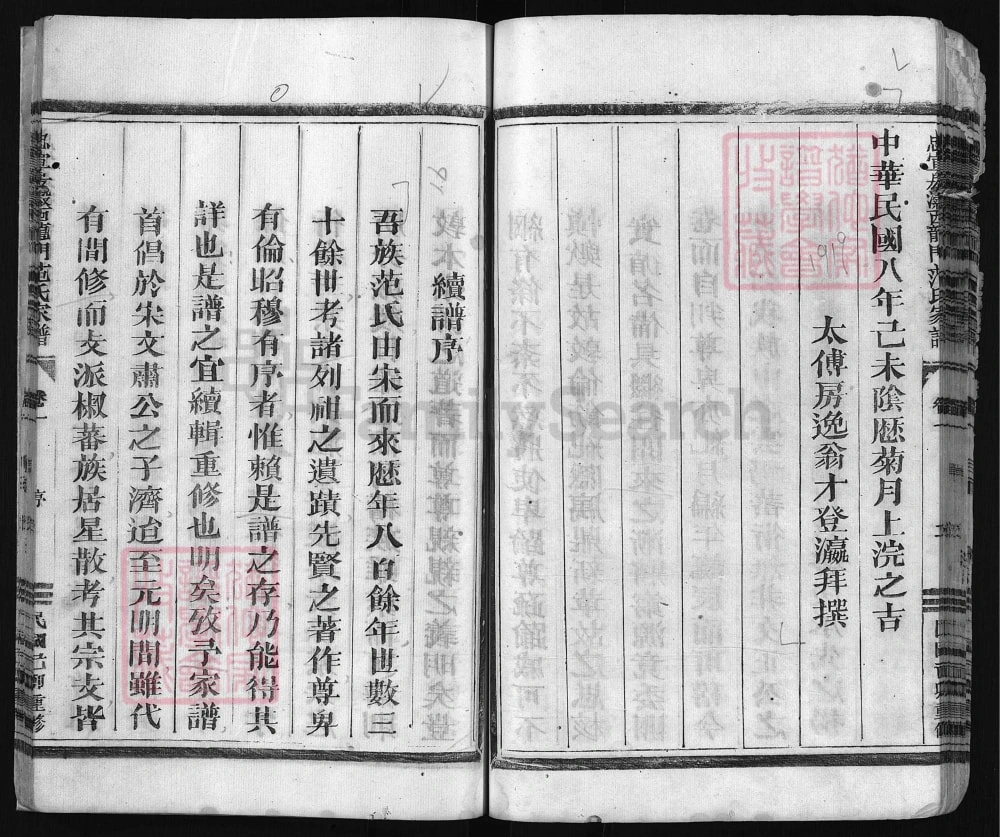 中華民國八年己未陰厯菊月上浣之吉
1919
太傅房逸翁才登瀛拜撰
續譜序
吾族范氏由宋而來厯年八百餘年世數三
十餘世考諸列祖之遺蹟先賢之著作尊卑
有倫昭穆有序者惟賴是譜之存乃能得其
詳也是譜之宜續輯重修也明矣攷予家譜
首倡於宋文肅公之子濟迨至元明間雖代
有間修而支派椒蕃族居星散考其宗支皆
龍門范氏家譜
卷一
序
民國己未重修
FamilySearch